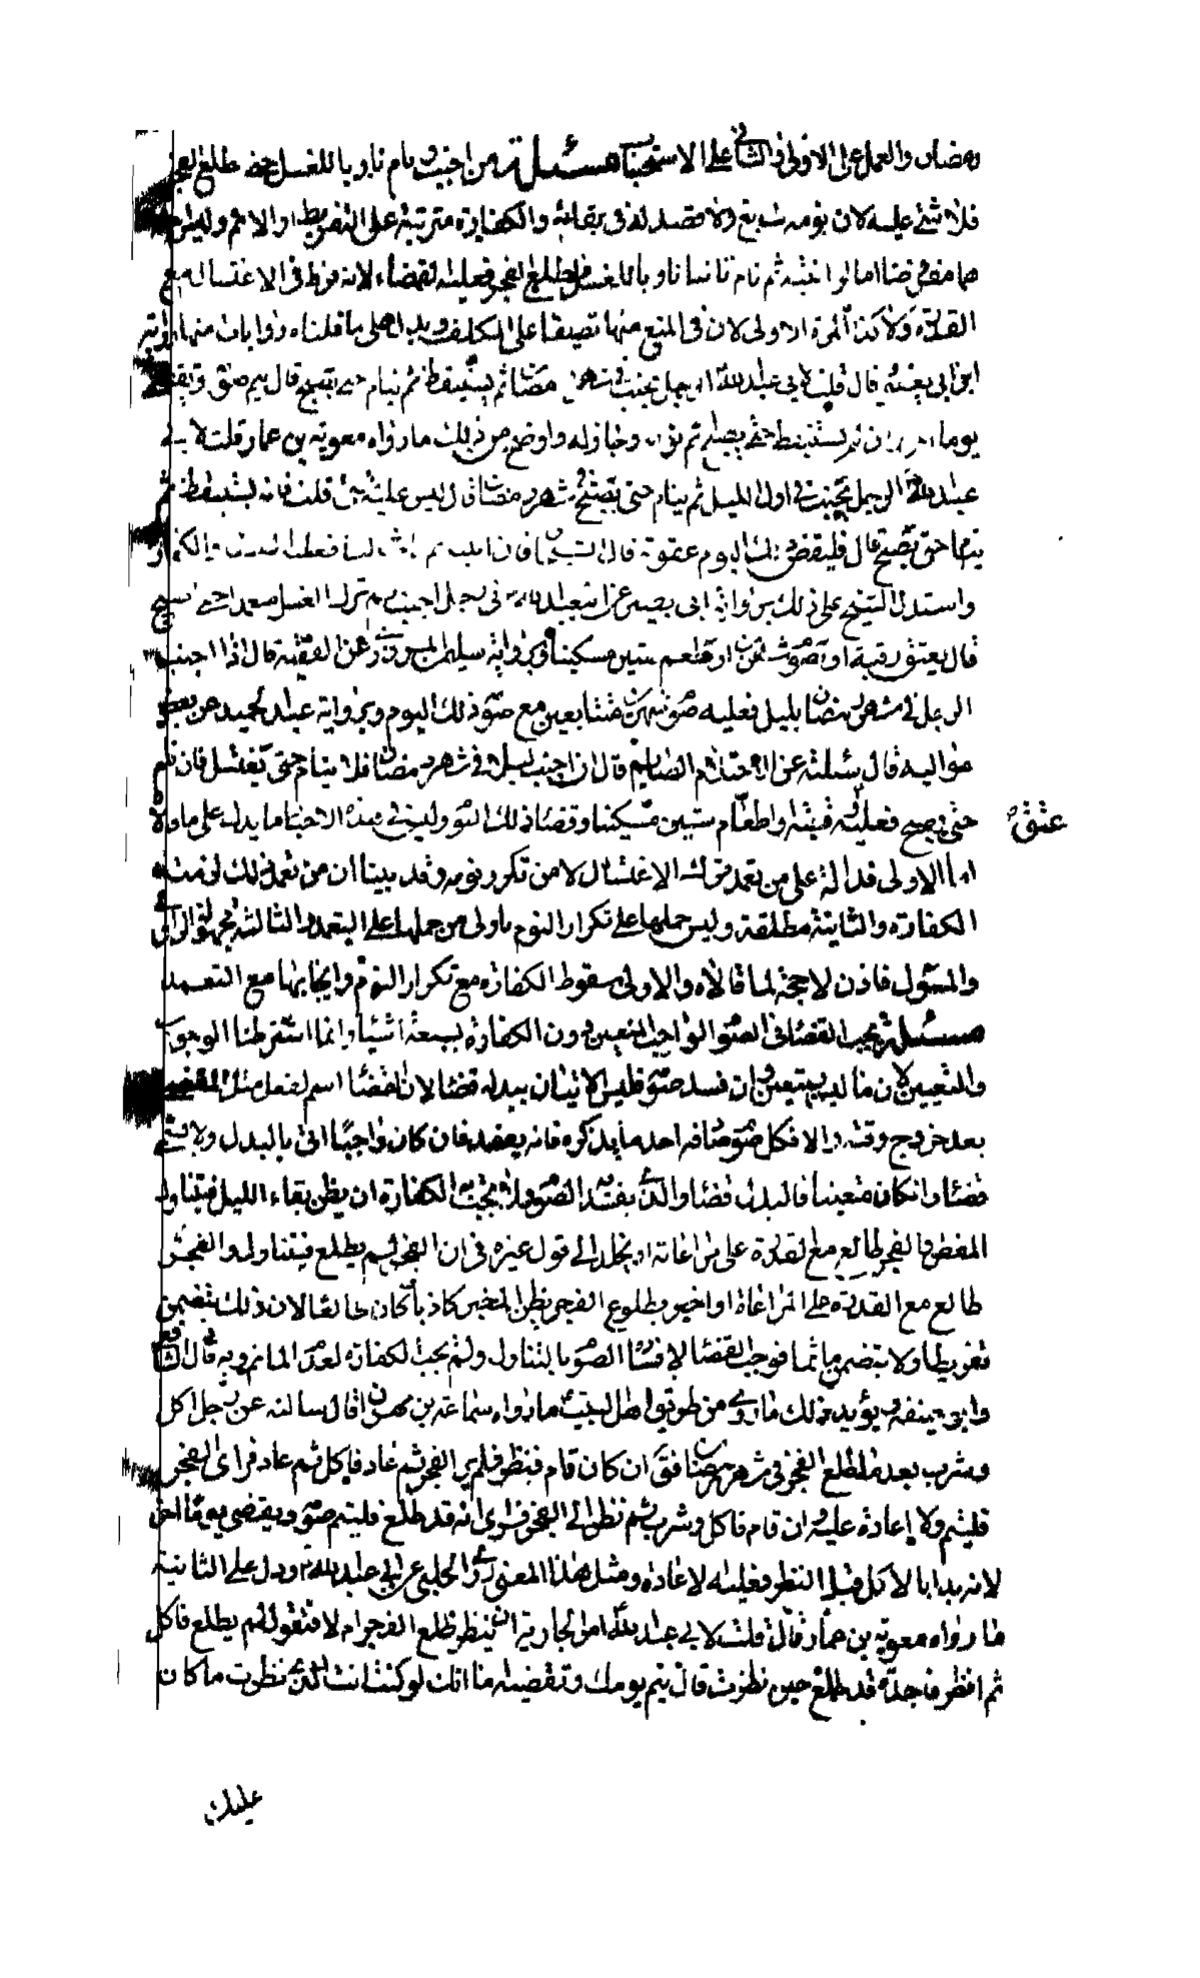 رمضان والعمل على الاولى و الثانى على الاستحباب مسئلة من اجنب و نام ناويا للغسل حتى طلع الفجر
فلا شئ عليه لان نومه سايغ ولا قصد له فى بقائه والكفارة مترتبة على التفريط او الاثم وليس
هنا اما لو انتبه ثم نام ثانيا ناويا للغسل فطلع الفجر فعليه القضاء لانه فرط فى الاغتسال مع
القدرة ولا كذا المرة الاولى لان فى المنع منها تضيقا على المكلف ويدل على ما قلناه روايات منها رواية
ابن ابى يعفور قال قلت لابى عبد الله الرجل يجنب فى شهر رمضان ثم يستيقظ ثم ينام حتى يصبح قال يتم صومه ويقضى
يوما اخر وان لم يستيقظ حتى يصبح اتم يومه وجاز له واوضح من ذلك ما رواه معوية بن عمار قلت لابى
عبد الله الرجل يجنب فى اول الليل ثم ينام حتى يصبح فى شهر رمضان قال ليس عليه شئ قلت فانه استيقظ ثم
ينام حتى يصبح قال فليقض ذلك اليوم عقوبة قال الشيخان فان انتبه ثم نام فعليه القضاء والكفارة
واستدل الشيخ على ذلك برواية ابى بصير عن ابى عبد الله فى رجل اجنب ثم ترك الغسل متعمدا حتى اصبح
قال يعتق رقبة او يصوم شهرين او يطعم ستين مسكينا وبرواية سليمن المروزى عن الفقيه قال اذا اجنب
الرجل فى شهر رمضان بليل فعليه صوم شهرين متتابعين مع صوم ذلك اليوم وبرواية عبد الحميد عن بعض
مواليه قال سئلته عن احتلام الصايم قال ان اجنب ليلا فى شهر رمضان فلا ينام حتى يغتسل فان نام
حتى يصبح فعليه رقبة او اطعام ستين مسكينا وقضاء ذلك اليوم وليس فى هذه الاخبار ما يدل على ما قالاه
عتق
اما الاولى فدالة على من تعمد ترك الاغتسال لا من تكرر نومه وقد بينا ان من تعمد ذلك لزمته
الكفارة والثانية مطلقة وليس حملها على تكرار النوم باولى من حملها على التعمد والثالثة مجهولة الراوى
والمسئول فاذن لا حجة لما قالاه والاولى سقوط الكفارة مع تكرار النوم وايجابها مع التعمد
مسئلة يجب القضاء فى الصوم الواجب المتعين دون الكفارة بسبعة اشياء وانما اشترطنا الوجوب
والتعيين لان ما ليس بمتعين وان فسد صومه فليس الاتيان ببدله قضاء لان القضاء اسم لفعل مثل المقضى
بعد خروج وقته والا فكل صوم صادفه احد ما يذكره فانه يفسد فان كان واجبا اتى بالبدل ولا يسمى
قضاء وان كان متعينا فالبدل قضاء والذى يفسد الصوم ولا يجب به الكفارة ان يظن بقاء الليل فيتناول
المفطر والفجر طالع مع القدرة على مراعاته او يخلد الى قول غيره فى ان الفجر لم يطلع فيتناول والفجر
طالع مع القدرة على المراعاة او اخبر بطلوع الفجر فظن المخبر كاذبا فكان طالعا لان ذلك يتضمن
تفريطا ولا يتضمن ماثما فوجب القضاء لافساد الصوم بالتناول ولم يجب الكفارة لعدم الماثم وبه قال الشافعى
وابو حنيفه ويؤيد ذلك ما روى من طريق اهل البيت ما رواه سماعة بن مهران قال سالته عن رجل اكل
وشرب بعد ما طلع الفجر فى شهر رمضان فقال ان كان قام فنظر فلم ير الفجر ثم عاد فاكل ثم عاد فراى الفجر
فليتم ولا اعادة عليه وان قام فاكل وشرب ثم نظر الى الفجر فراى انه قد طلع فليتم صومه ويقضى يوما اخر
لانه بدا بالاكل قبل النظر فعليه الاعادة ومثل هذا المعنى روى الحلبى عن ابى عبد الله ودل على الثانية
ما رواه معوية بن عمار قال قلت لابى عبد الله امر الجارية ان ينظر طلع الفجر ام لا فتقول لم يطلع فاكل
ثم انظر فاجده قد طلع حين نظرت قال تتم يومك وتقضيه اما انك لو كنت انت الذى نظرت ما كان
عليك